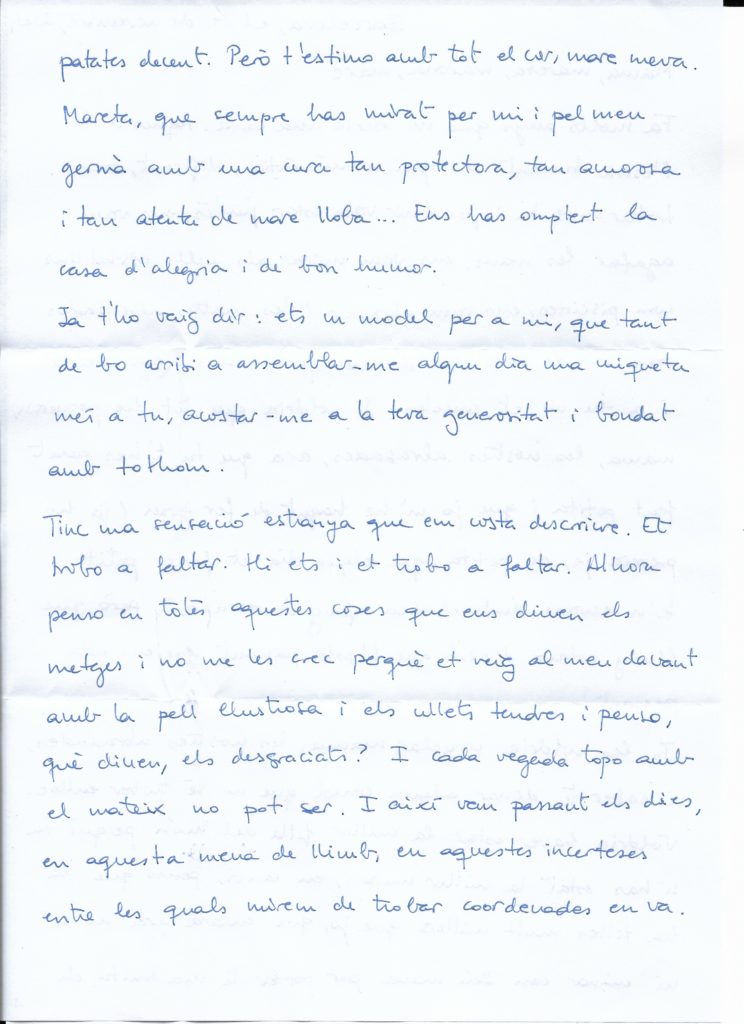 patates decent. Però t'estimo amb tot el cor, mare meva.
Mareta, que sempre has mirat per mi i pel meu
germà amb una cura tan protectora, tan amorosa
i tan atenta de mare lloba... Ens has omplert la
casa d'alegria i de bon humor.
Ja t'ho vaig dir: ets un model per a mi, que tant
de bo arribi a assemblar-me algun dia una miqueta
més a tu, acostar-me a la teva generositat i bondat
amb tothom.
Tinc una sensació estranya que em costa descriure. Et
trobo a faltar. Hi ets i et trobo a faltar. Alhora
penso en totes aquestes coses que ens diuen els
metges i no me les crec perquè et veig al meu davant
amb la pell llustrosa i els ullets tendres i penso,
què diuen, els desgraciats? I cada vegada topo amb
el mateix no pot ser. I així vam passant els dies,
en aquesta mena de llimb, en aquestes incerteses
entre les quals mirem de trobar coordenades en va.